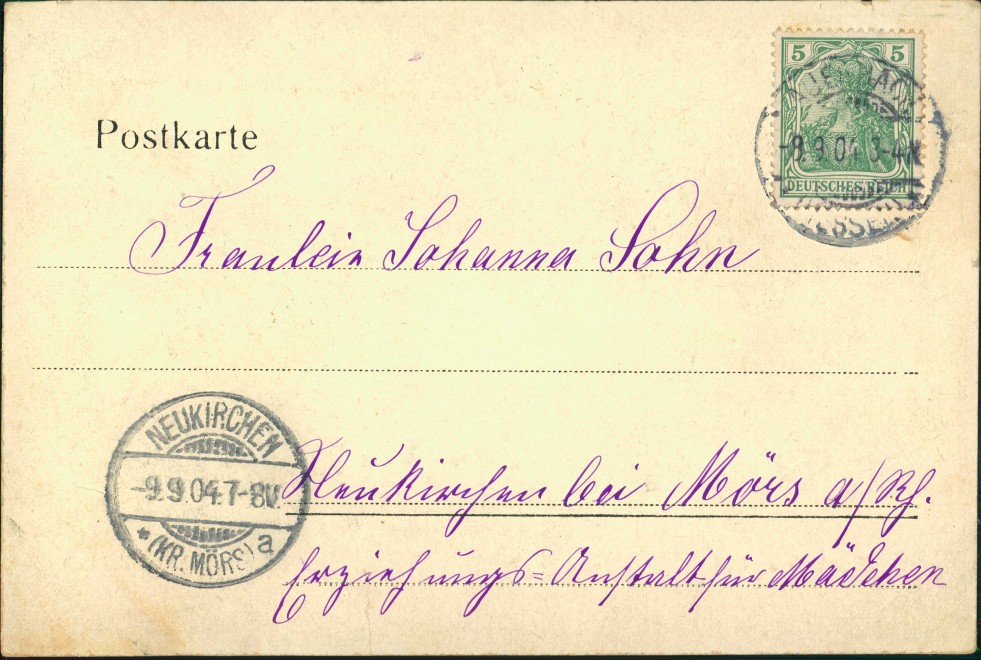 5 5
-8.9.04 3-4N
DEUTSCHES REICH
Postkarte
Fraulein Johanna Sohn
NEUKIRCHEN
-9.9.04.7-8V.
* (KR. MÖRS) a
Neukirchen bei Mörs a/Rh.
Erziehungs=Anstalt für Mädchen